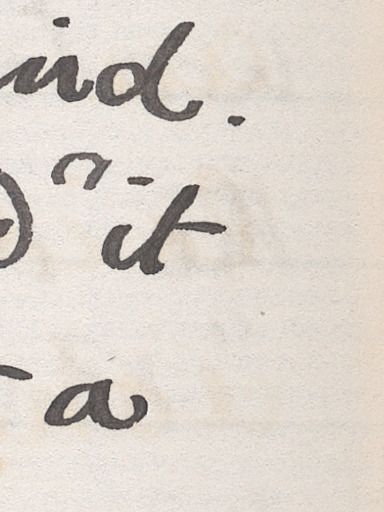 ind.
it
a